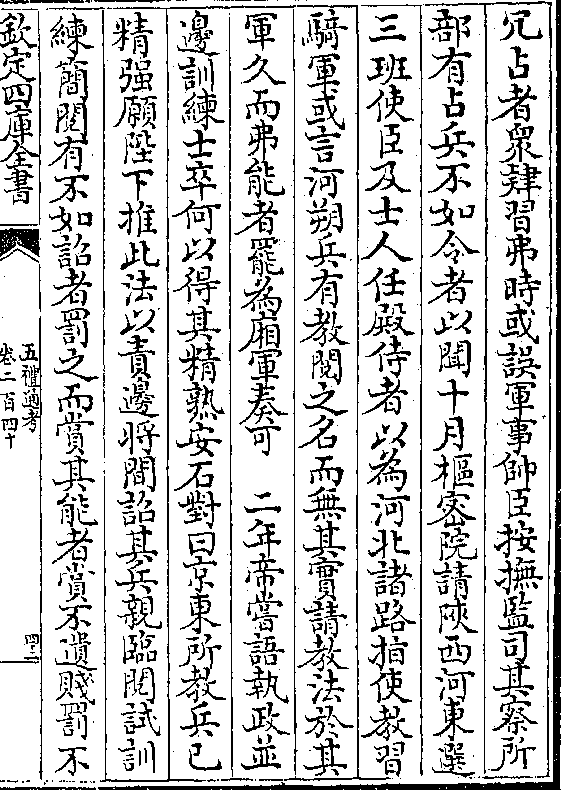 冗占者衆肄習弗時或誤軍事帥臣按撫監司其察所
部有占兵不如令者以聞十月樞密院請陜西河東選
三班使臣及士人任殿侍者以為河北諸路指使教習
騎軍或言河朔兵有教閱之名而無其實請教法於其
軍久而弗能者罷為廂軍奏可　二年帝嘗語執政並
邊訓練士卒何以得其精熟安石對曰京東所教兵已
精强願陛下推此法以責邊將間詔其兵親臨閱試訓
練簡閱有不如詔者罰之而賞其能者賞不遺賤罰不
欽定四庫全書
五禮通考
卷二百四十
四二